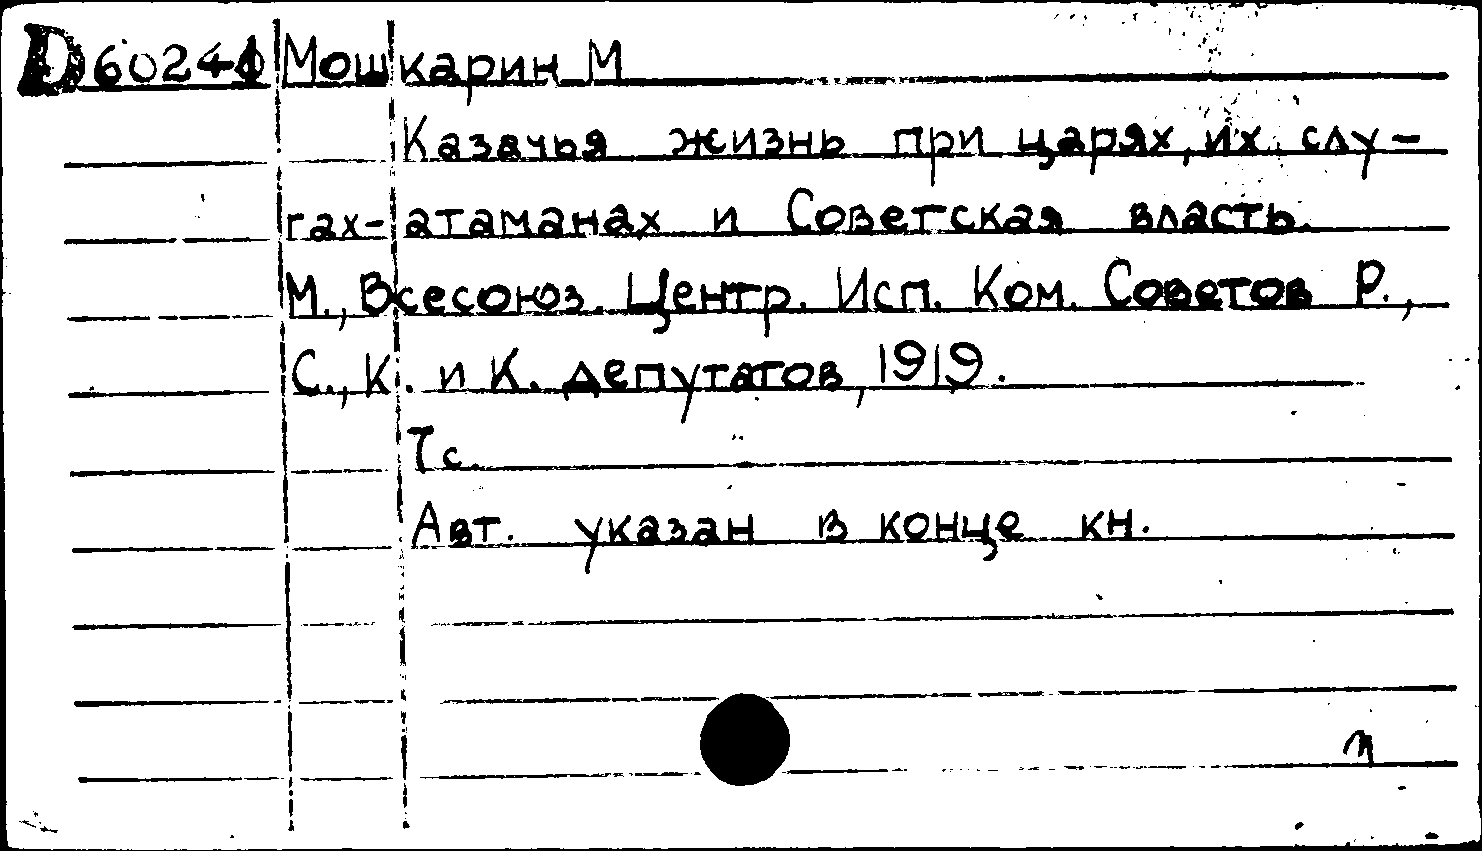 D60241 Мошкарин М
Казачья жизнь при царях, их слу-
гах-атаманах и Советская власть.
М., Всесоюз. Центр. Исп. Ком. Советов Р.,
С., К. и К. депутатов, 1919.
Тс.
Авт. указан в конце кн.
п